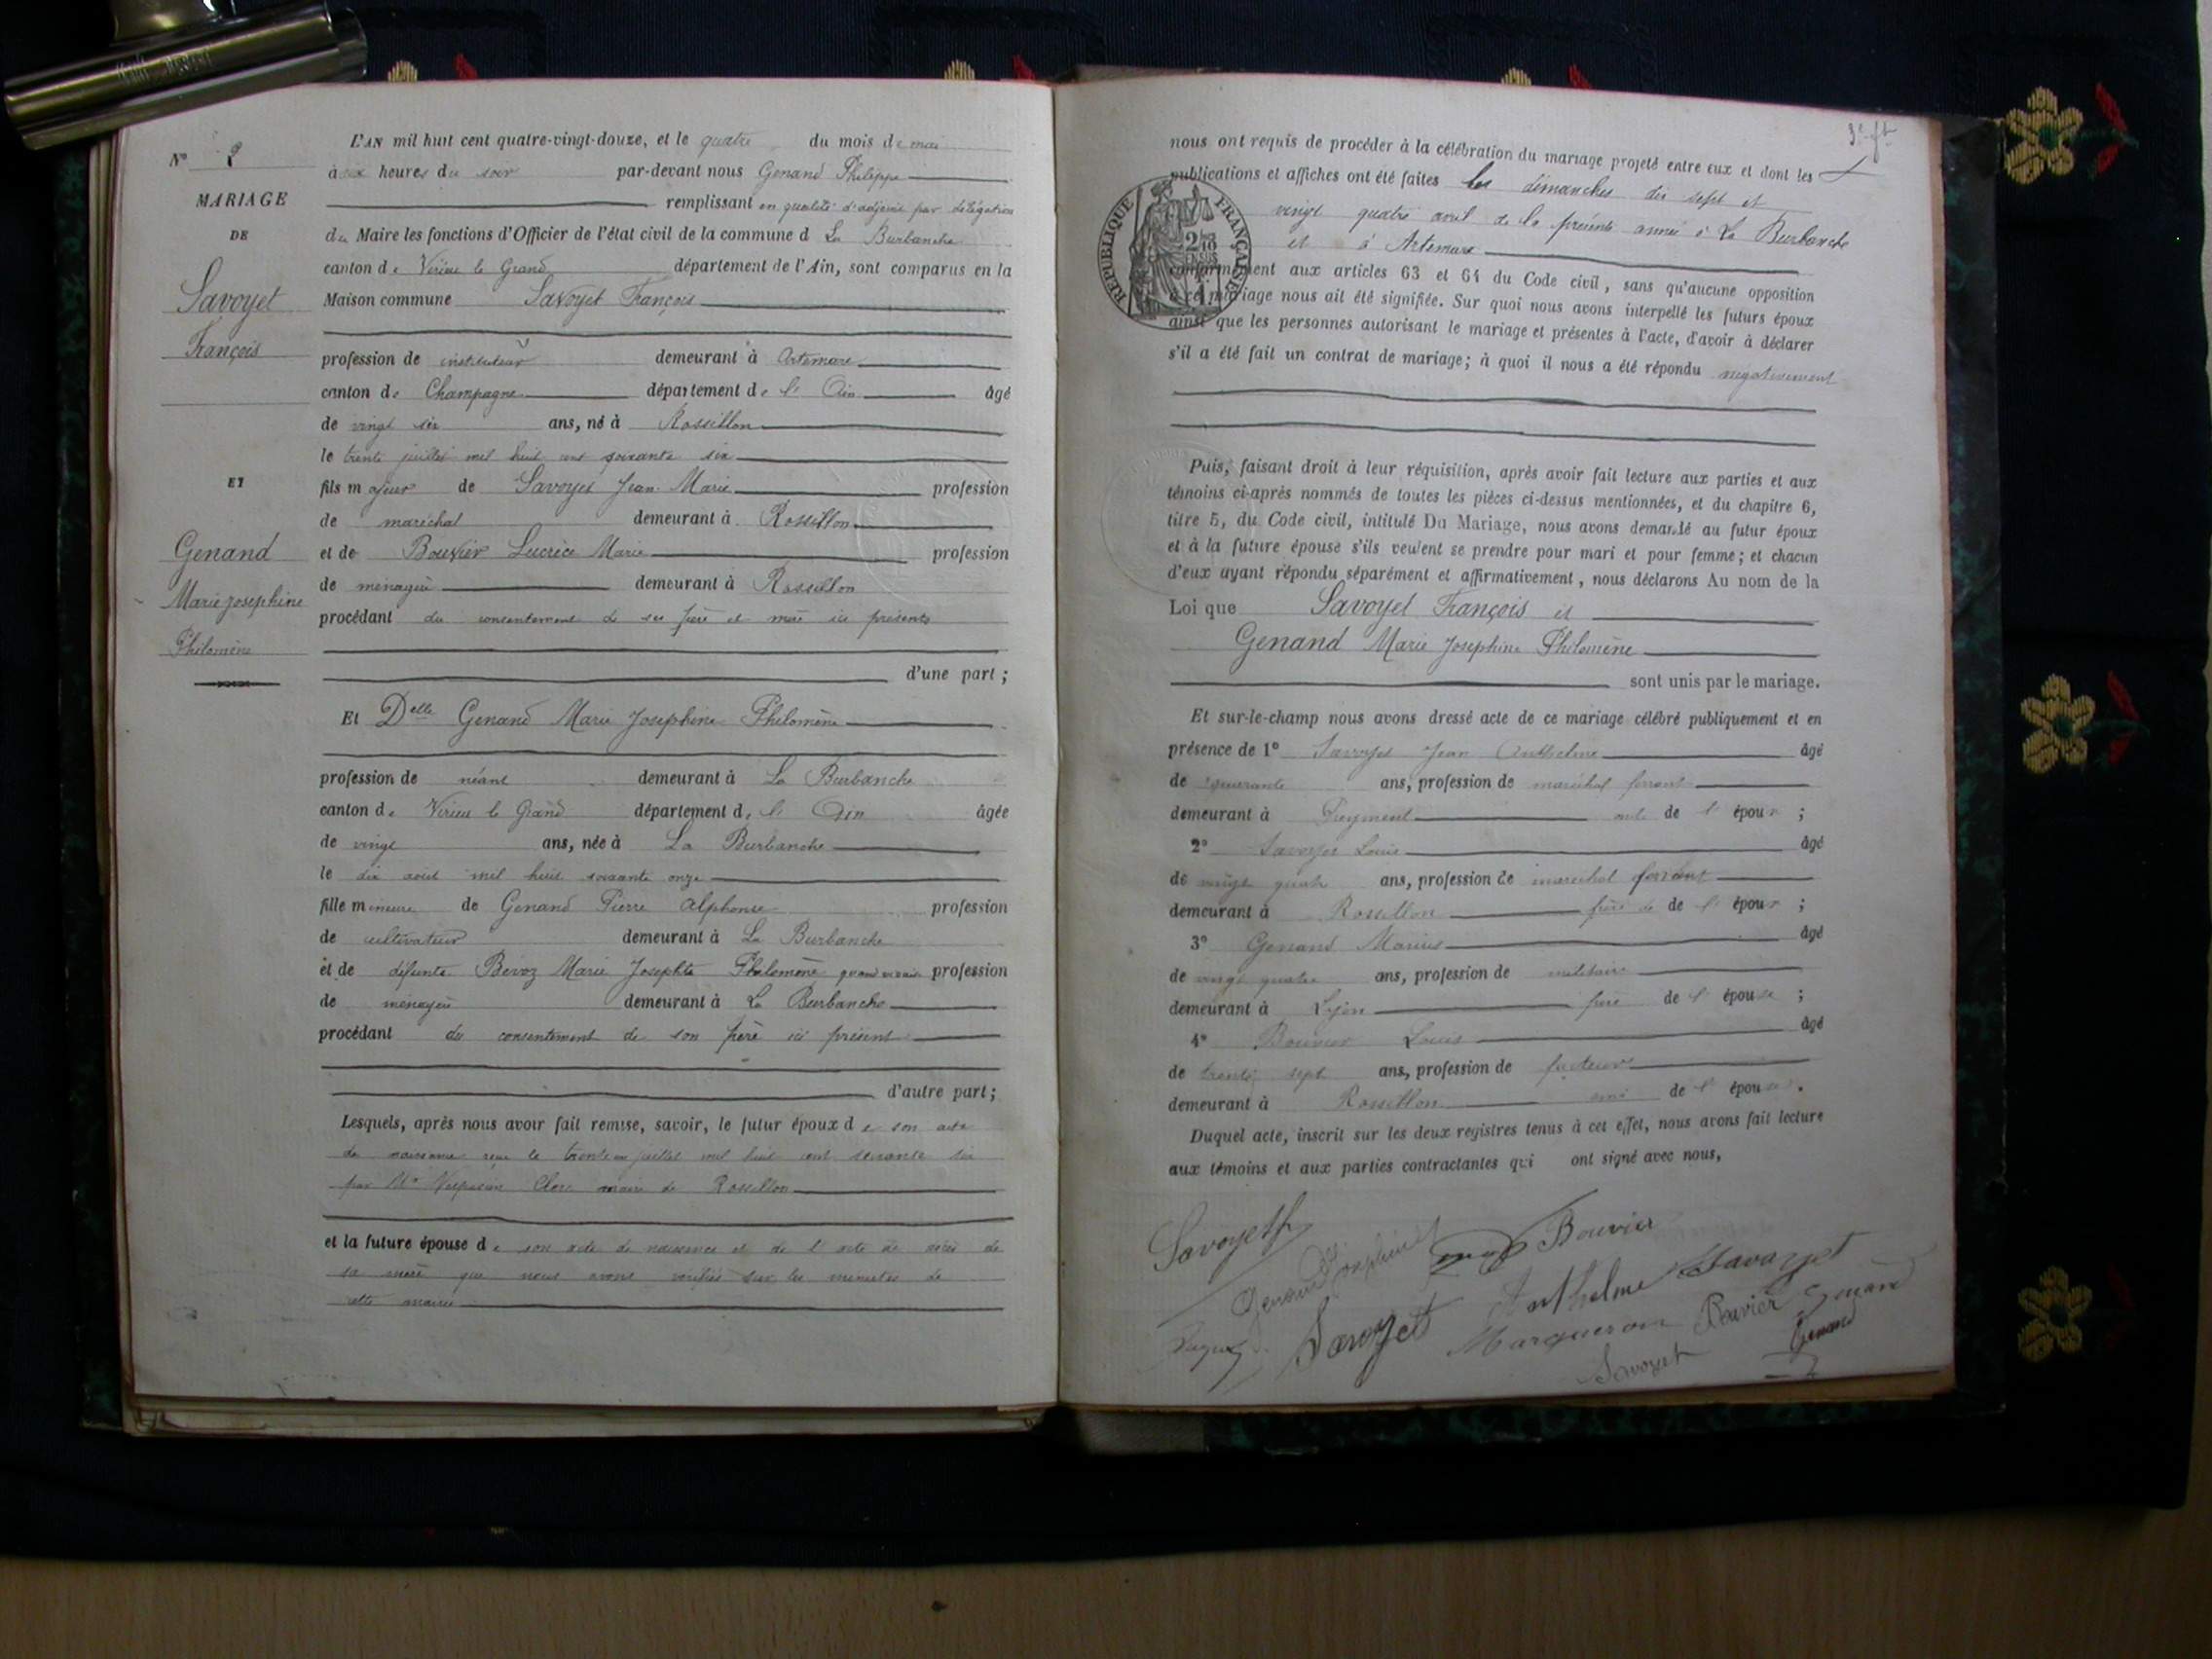 N° 2
MARIAGE
DE
Savoyet
François
ET
Genand
Marie Josephine
Philomène
L'AN mil huit cent quatre-vingt-douze, et le quatre du mois de mai
à six heures du soir par-devant nous Genand Philippe
remplissant en qualité d'adjoint par délégation
du Maire les fonctions d'Officier de l'état civil de la commune d La Burbanche
canton de Virieu le Grand département de l'Ain, sont comparus en la
Maison commune Savoyet François
profession de instituteur demeurant à Artemare
canton de Champagne département de l' Ain âgé
de vingt six ans, né à Rossillon
le trente juillet mil huit cent soixante six
fils majeur de Savoyet Jean Marie profession
de maréchal demeurant à Rossillon
et de Bouvier Lucrèce Marie profession
de ménagère demeurant à Rossillon
procédant du consentement de ses père et mère ici présents
d'une part ;
Et Delle Genand Marie Josephine Philomène
profession de néant demeurant à La Burbanche
canton de Virieu le Grand département de l' Ain âgée
de vingt ans, née à La Burbanche
le dix août mil huit soixante onze
fille mineure de Genand Pierre Alphonse profession
de cultivateur demeurant à La Burbanche
et de défunte Bevoz Marie Josephte Philomène quand vivait profession
de ménagère demeurant à La Burbanche
procédant du consentement de son père ici présent
d'autre part ;
Lesquels, après nous avoir fait remise, savoir, le futur époux de son acte
de naissance reçu le trente un juillet mil huit cent soixante six
par Mr Vespasien Clerc maire de Rossillon
et la future épouse de son acte de naissance et de l'acte de décès de
sa mère que nous avons vérifiés sur les minutes de
cette mairie
3e ft
nous ont requis de procéder à la célébration du mariage projeté entre eux et dont les
publications et affiches ont été faites les dimanches dix sept et
vingt quatre avril de la présente année à La Burbanche
et à Artemare
RÉPUBLIQUE FRANÇAISE
conformément aux articles 63 et 64 du Code civil, sans qu'aucune opposition
à ce mariage nous ait été signifiée. Sur quoi nous avons interpellé les futurs époux
ainsi que les personnes autorisant le mariage et présentes à l'acte, d'avoir à déclarer
s'il a été fait un contrat de mariage ; à quoi il nous a été répondu négativement
Puis, faisant droit à leur réquisition, après avoir fait lecture aux parties et aux
témoins ci-après nommés de toutes les pièces ci-dessus mentionnées, et du chapitre 6,
titre 5, du Code civil, intitulé Du Mariage, nous avons demandé au futur époux
et à la future épouse s'ils veulent se prendre pour mari et pour femme ; et chacun
d'eux ayant répondu séparément et affirmativement, nous déclarons Au nom de la
Loi que Savoyet François et
Genand Marie Josephine Philomène
sont unis par le mariage.
Et sur-le-champ nous avons dressé acte de ce mariage célébré publiquement et en
présence de 1° Savoyet Jean Anthelme âgé
de quarante ans, profession de maréchal ferrant
demeurant à de l' époux ;
2° Savoyet Louis âgé
de vingt quatre ans, profession de maréchal ferrant
demeurant à Rossillon frère de de l' époux ;
3° Genand Marius âgé
de vingt quatre ans, profession de militaire
demeurant à Lyon frère de l' épouse ;
4° Bouvier Louis âgé
de trente sept ans, profession de facteur
demeurant à Rossillon ami de l' époux.
Duquel acte, inscrit sur les deux registres tenus à cet effet, nous avons fait lecture
aux témoins et aux parties contractantes qui ont signé avec nous,
Savoyet f
Genand Josephine
Bouvier
Anthelme Savoyet
Savoyet
Marqueron
Bouvier
Genand
Savoyet
Genand